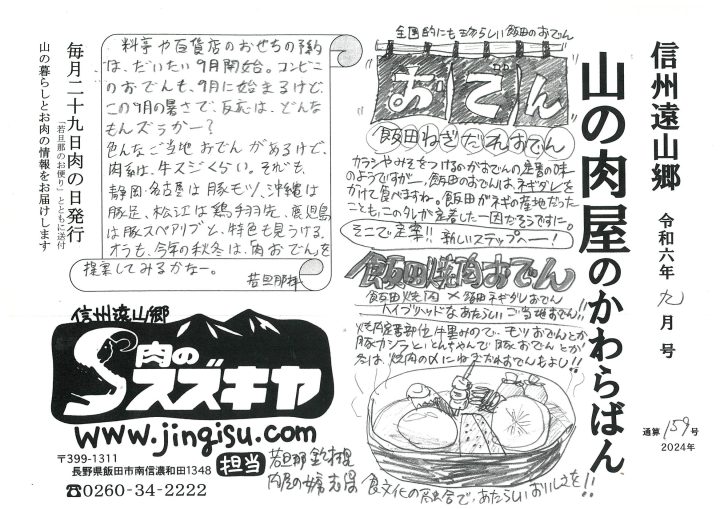 信州遠山郷
山の肉屋のかわらばん
令和六年 九月号
通算159号
2024年
全国的にもめずらしい飯田のおでん
おでん
飯田ねぎだれおでん
カラシやみそをつけるのがおでんの定番の味
のようですが、飯田のおでんは、ネギダレを
かけて食べますね。飯田がネギの産地だった
ことも、このタレが定着した一因だそうです。
そこで定番!! 新しいステップへー!
飯田焼肉おでん
飯田焼肉×飯田ネギダレおでん
ハイブリッドなあたらしいご当地おでん!!
焼肉定番部位 牛黒みので、モツおでんとか
豚カシラととんちゃんで豚おでんとか
冬は、焼肉の〆にねぎだれおでんもよし!!
食文化の融合で、あたらしいおいしさを!!
料亭や百貨店のおせちの予約
は、だいたい9月開始。コンビニ
のおでんも、9月に始まるけど、
この9月の暑さで、反応は、どんな
もんズラかー?
色んなご当地おでんがあるけど、
肉系は、牛スジくらい。それも、
静岡・名古屋は豚モツ、沖縄は
豚足、松江は鶏手羽先、鹿児島
は豚スペアリブと、特色も見うける。
オラも、今年の秋冬は、「肉おでん」を
提案してみるかなー。
若旦那拝
毎月二十九日肉の日発行
「若旦那のお便り」とともに送付
山の暮らしとお肉の情報をお届けします
信州遠山郷
肉の
スズキヤ
www.jingisu.com
〒399-1311
長野県飯田市南信濃和田1348
☎0260-34-2222
担当
若旦那
肉屋の女房